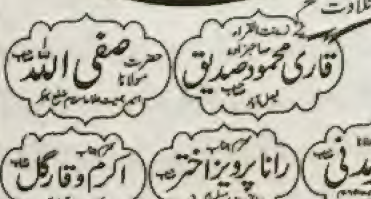 تلاوت
زینت القراء
صاحبزادہ
قاری محمود صدیق صاحب
فیصل آباد
حضرت مولانا
صفی اللہ صاحب
محترم جناب
رانا پرویز اختر صاحب
محترم جناب
اکرم وقار گل صاحب
مدنی